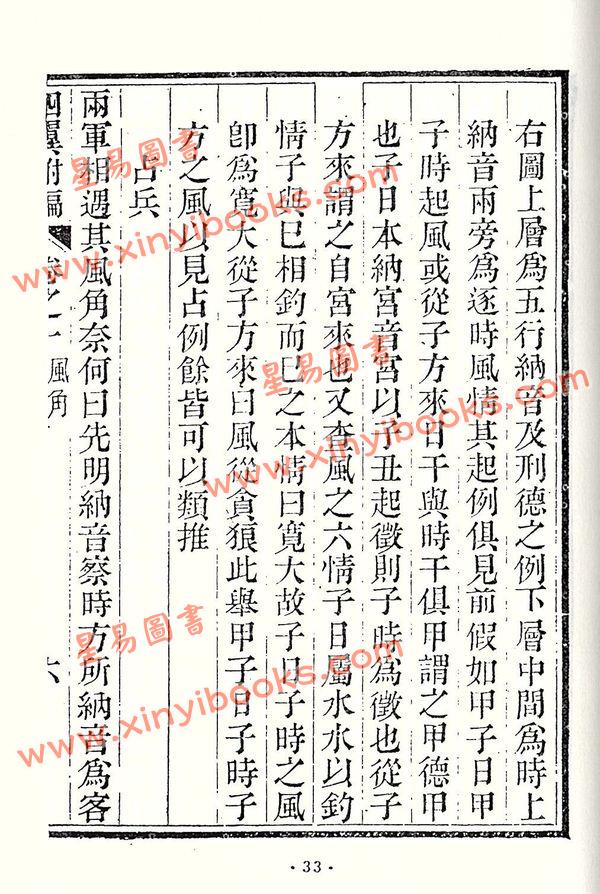 右圖上層爲五行納音及刑德之例下層中間爲時上
納音兩旁爲逐時風情其起例俱見前假如甲子日甲
子時起風或從子方來日干與時干俱甲謂之甲德甲
也子日本納宮音宮以子丑起徵則子時爲徵也從子
方來謂之自宮來也又查風之六情子日屬水水以鈞
情子與巳相鈞而巳之本情曰寬大故子日子時之風
卽爲寬大從子方來曰風從貪狼此舉甲子日子時子
方之風以見占例餘皆可以類推
占兵
兩軍相遇其風角奈何曰先明納音察時方所納音爲客
四翼附編 卷之一 風角 六
·33·
星易圖書
www.xinyibooks.com
星易圖書
www.xinyibooks.com
星易圖書
www.xinyibooks.com